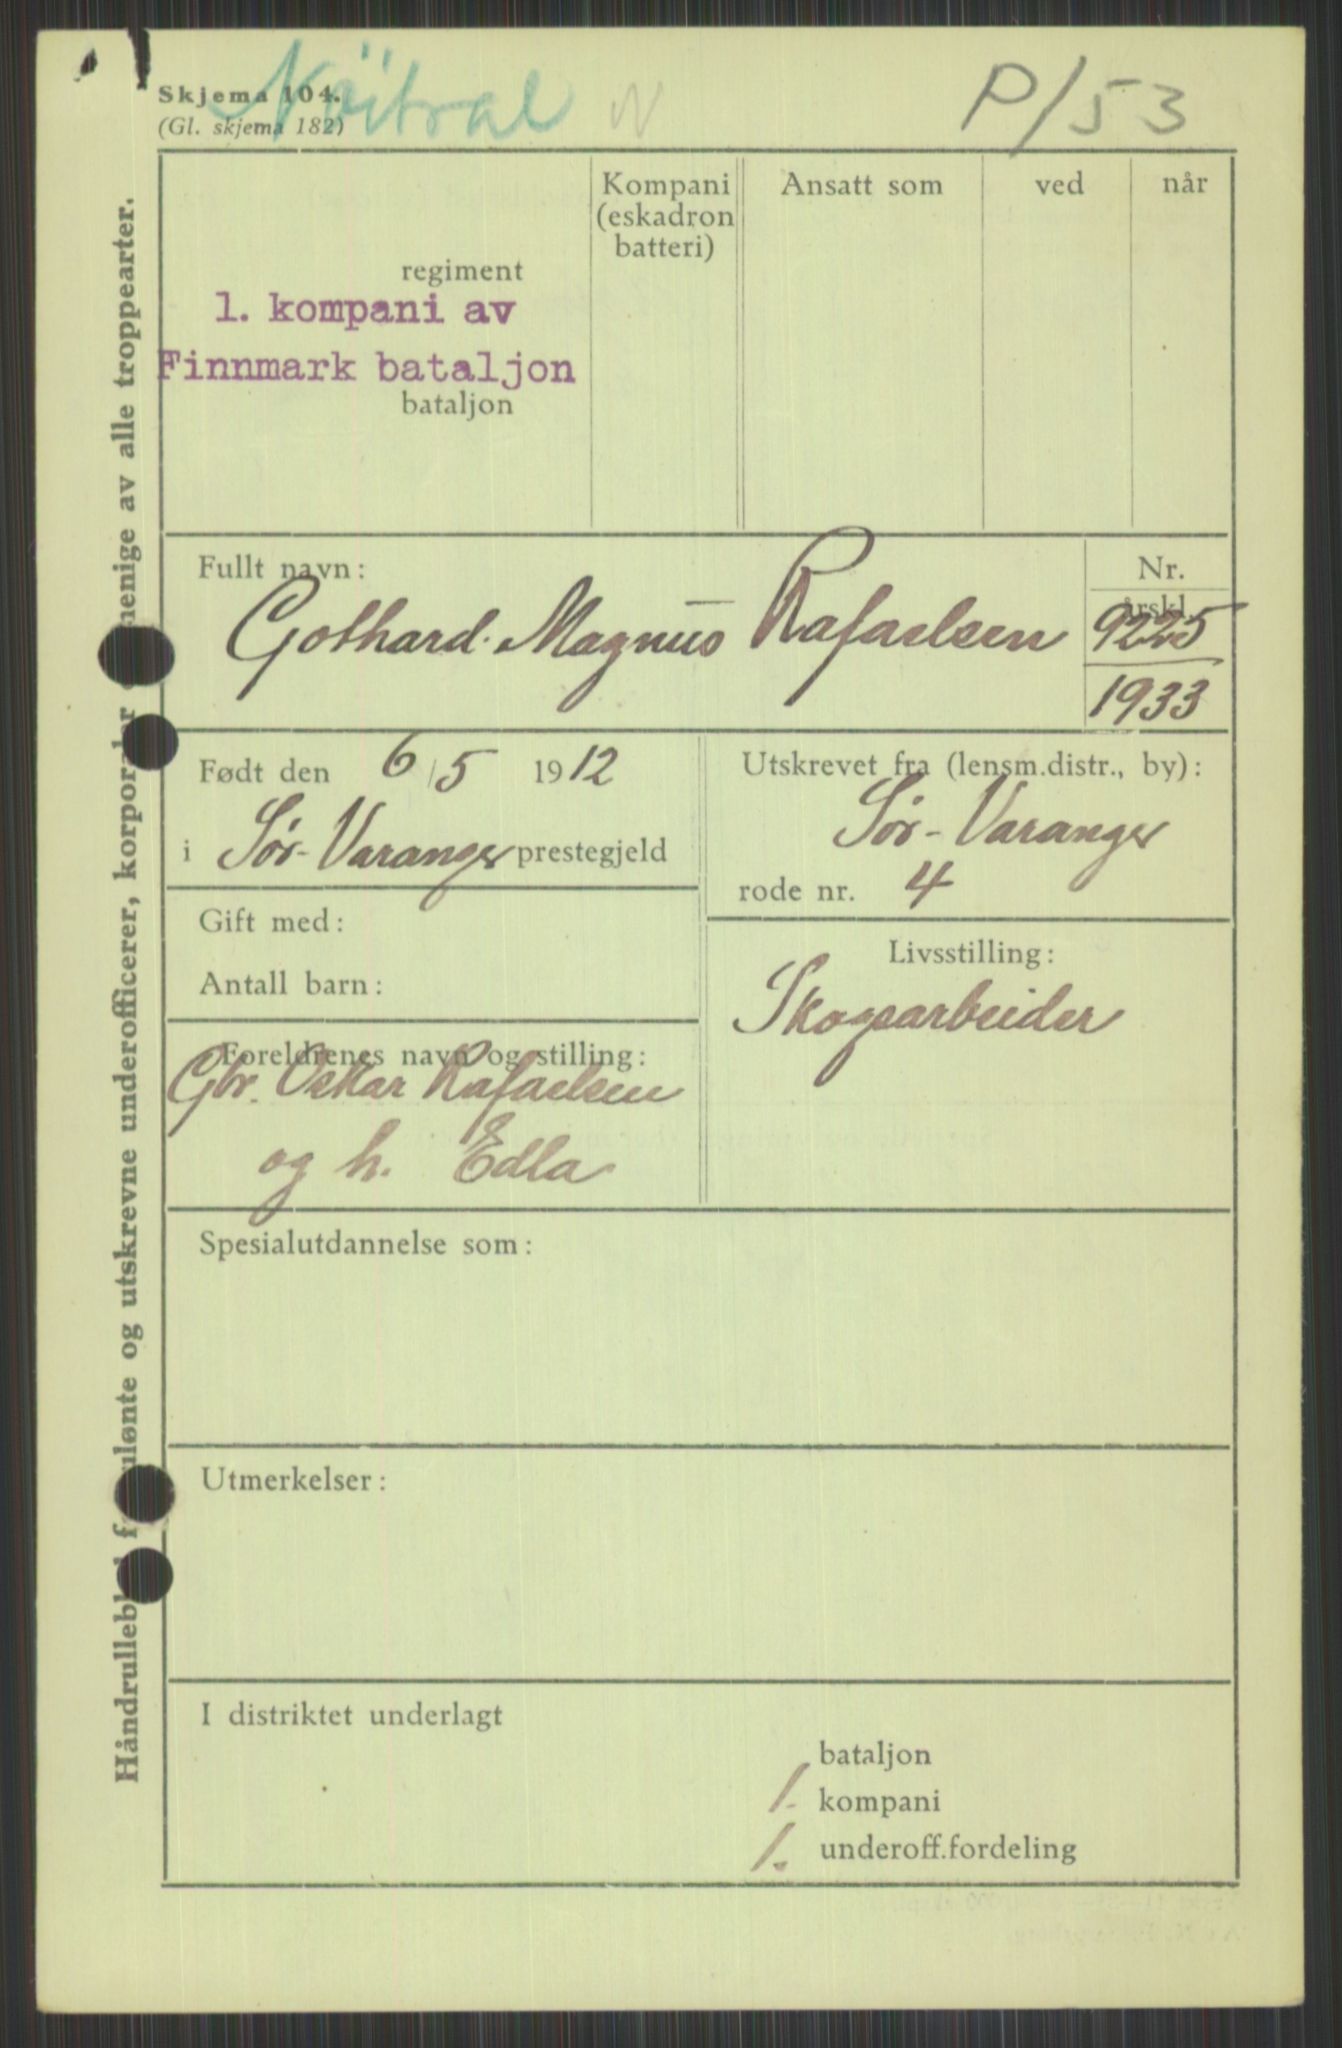 Nöitral N P/53
Skjema 104.
(Gl. skjema 182)
Kompani
(eskadron
batteri)
Ansatt som ved når
regiment
1. kompani av
Finnmark bataljon
bataljon
Fullt navn:
Gothard. Magnus Rafaelsen
Nr.
årskl.
9225
1933
Født den 6/5 1912
i Sør-Varanger prestegjeld
Utskrevet fra (lensm.distr., by):
Sør-Varanger
rode nr. 4
Gift med:
Antall barn:
Livsstilling:
Skogsarbeider
Foreldrenes navn og stilling:
Gbr. Oskar Rafaelsen
og h. Edla
Spesialutdannelse som:
Utmerkelser:
I distriktet underlagt
bataljon
1. kompani
1. underoff.fordeling
og utskrevne underofficerer, korporaler menige av alle troppearter.